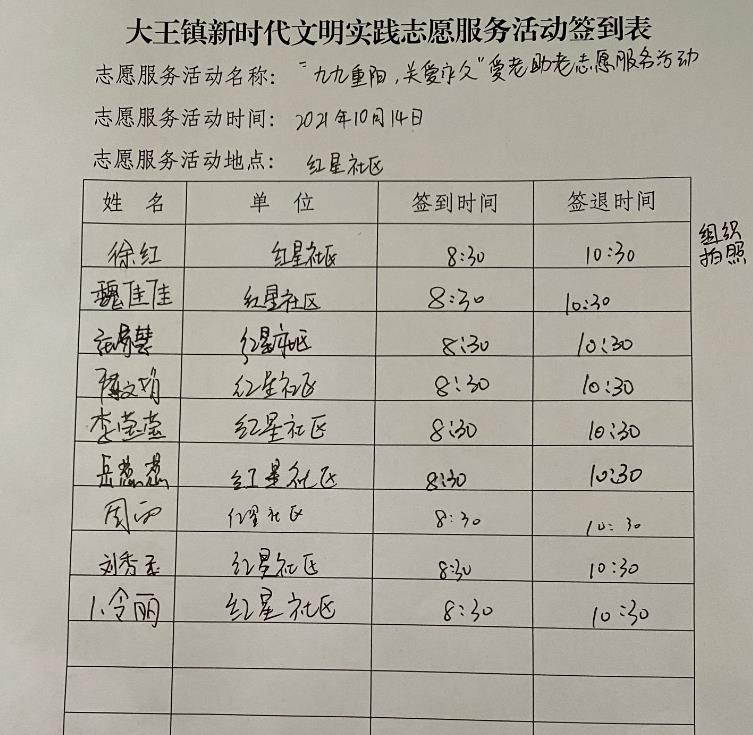 大王镇新时代文明实践志愿服务活动签到表
志愿服务活动名称: "九九重阳,关爱永久"爱老助老志愿服务活动
志愿服务活动时间: 2021年10月14日
志愿服务活动地点: 红星社区
姓 名 单 位 签到时间 签退时间
徐红 红星社区 8:30 10:30 组织
拍照
魏佳佳 红星社区 8:30 10:30
红星社区 8:30 10:30
陈文娟 红星社区 8:30 10:30
李莹莹 红星社区 8:30 10:30
岳蕊蕊 红星社区 8:30 10:30
周 红星社区 8:30 10:30
刘秀玉 红星社区 8:30 10:30
令丽 红星社区 8:30 10:30